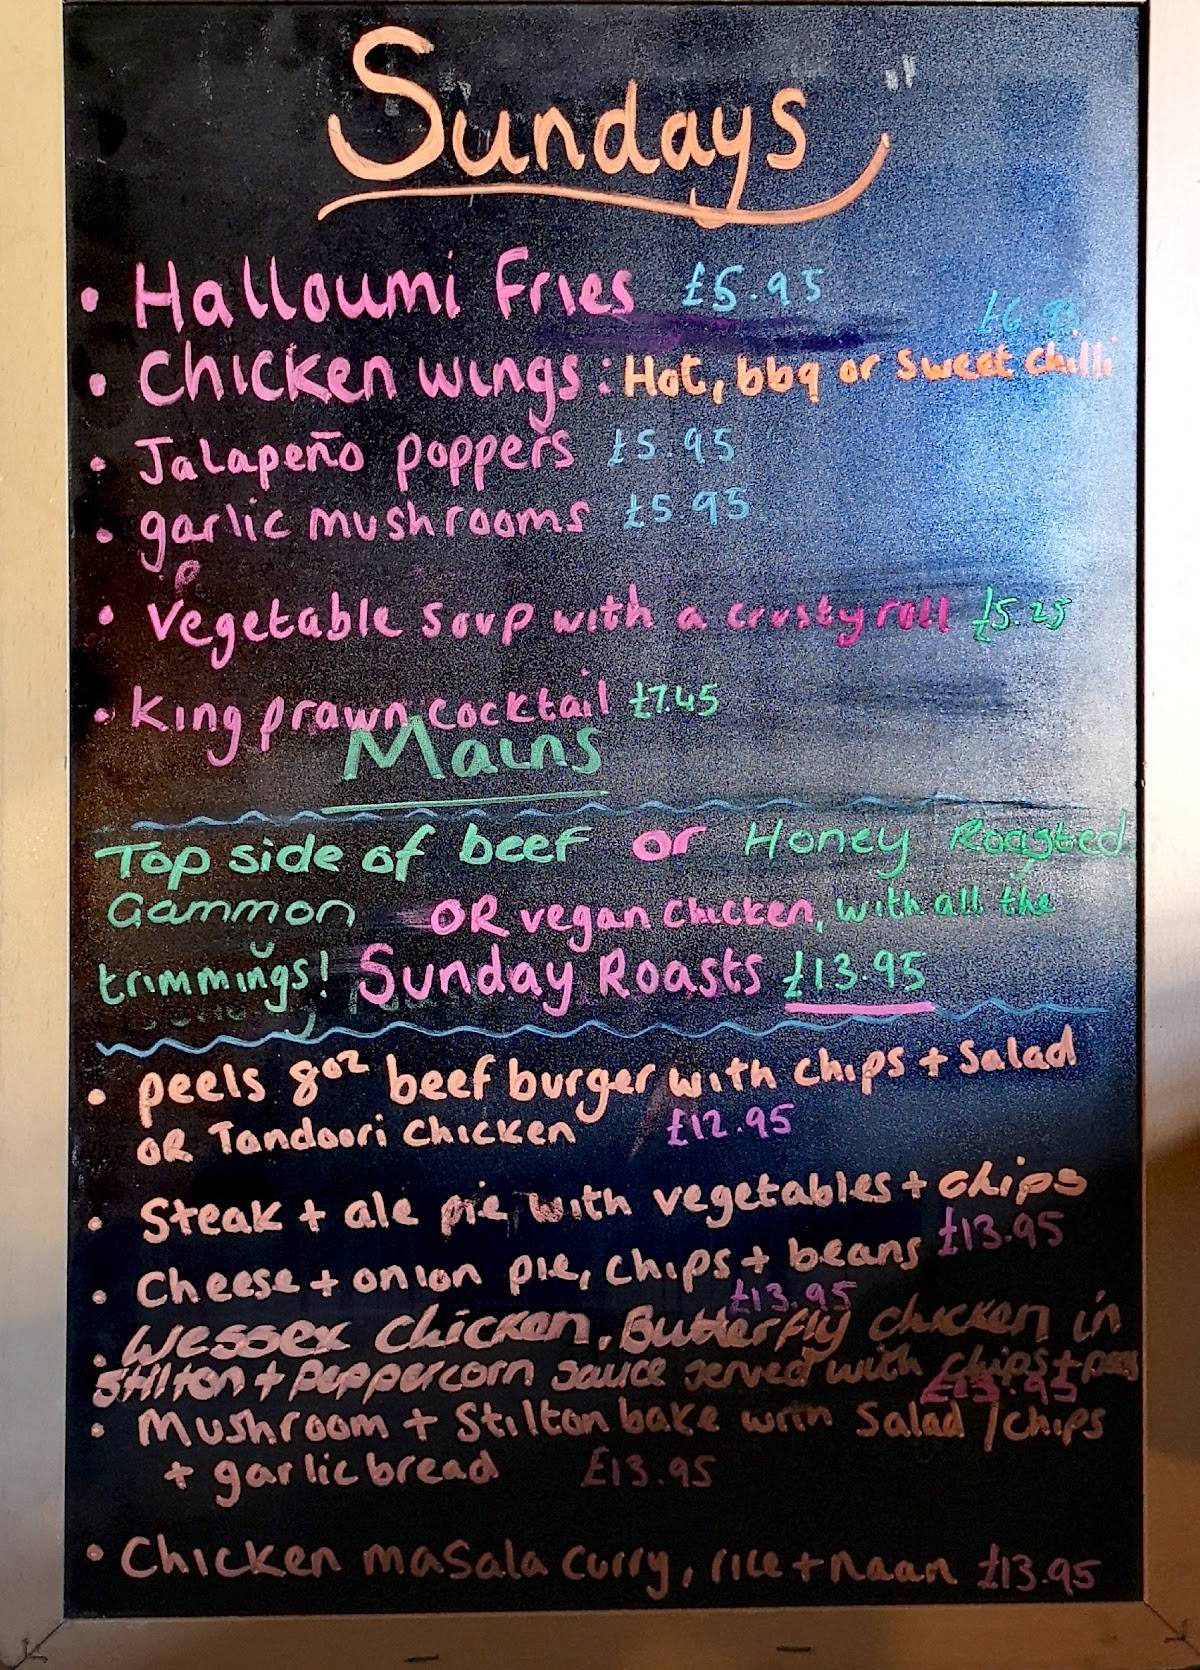 Sundays
• Halloumi Fries £5.95
£6.95
• Chicken wings: Hot, bbq or Sweet chilli
• Jalapeño poppers £5.95
• garlic mushrooms £5.95
• Vegetable Soup with a crusty roll £5.25
• King prawn cocktail £7.45
Mains
Top side of beef or Honey Roasted
Gammon OR vegan chicken, with all the
trimmings! Sunday Roasts £13.95
• peels 8oz beef burger with chips + Salad
OR Tandoori Chicken £12.95
• Steak + ale pie with vegetables + chips
£13.95
• Cheese + onion pie, chips + beans
£13.95
• Wessex Chicken, Butterfly chicken in
Stilton + Peppercorn sauce served with chips + peas
£13.95
• Mushroom + Stilton bake with Salad / chips
+ garlic bread £13.95
• Chicken masala curry, rice + naan £13.95